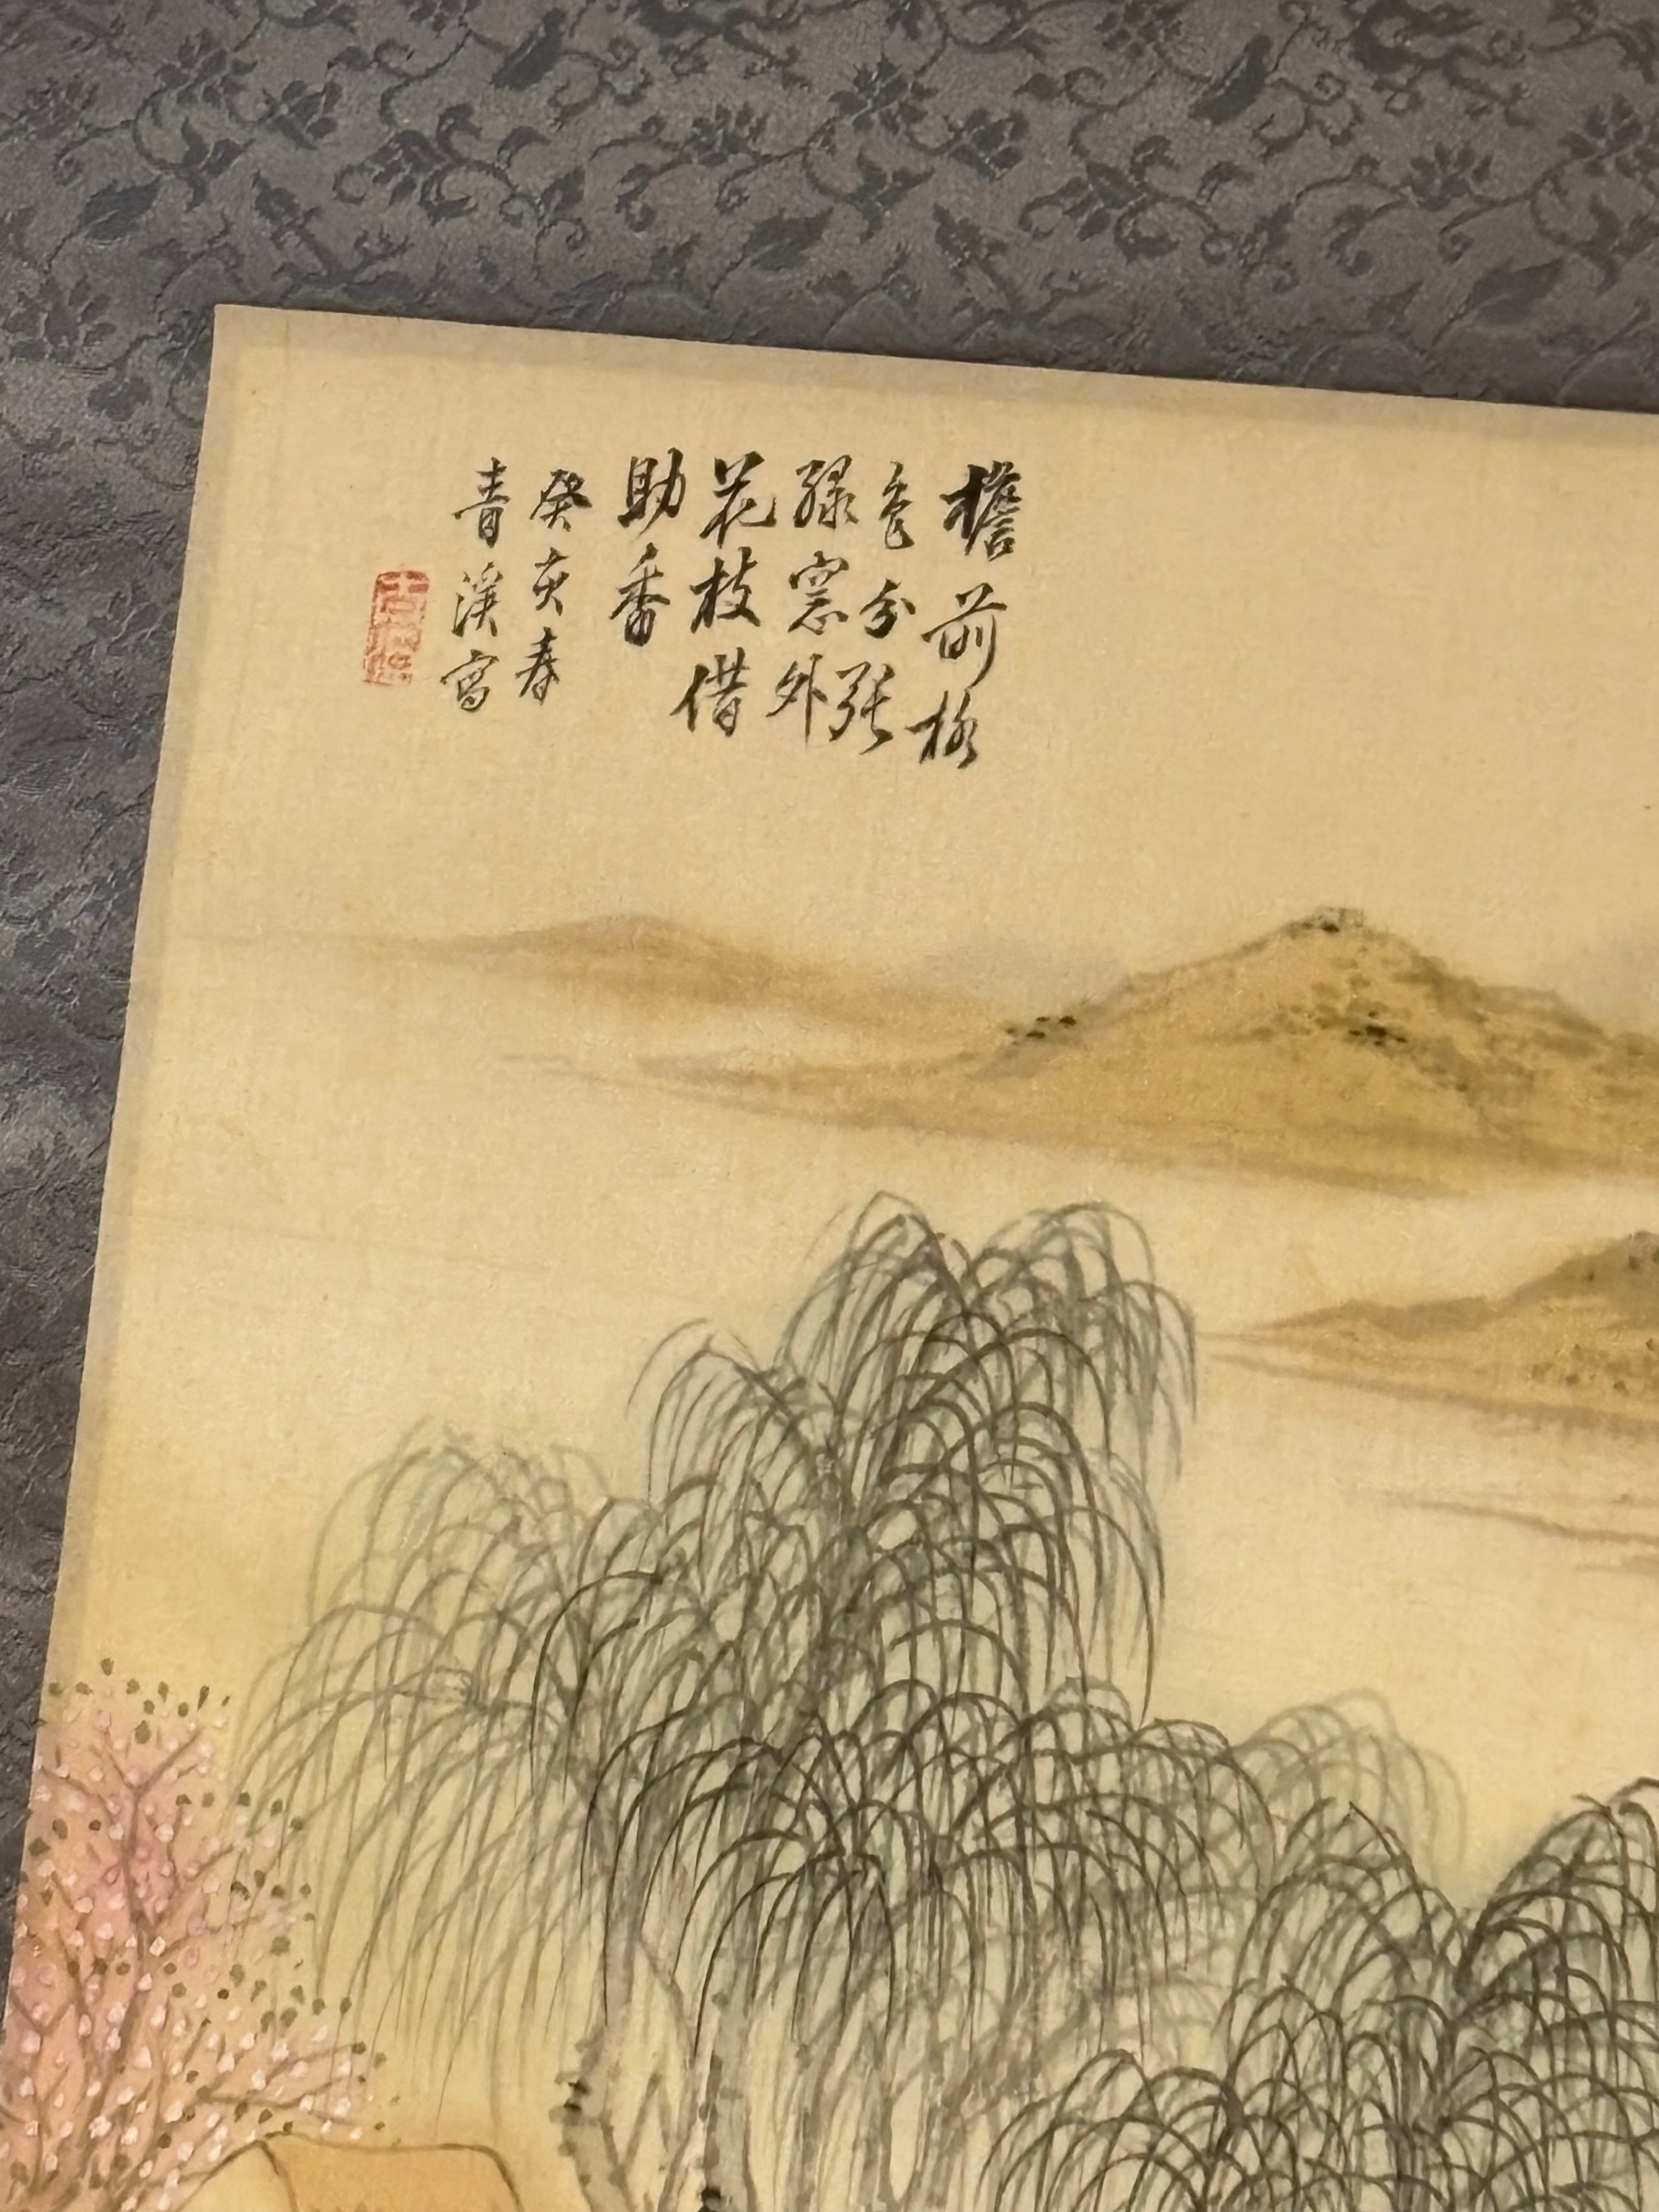 檐前柳
色分張
綠窓外
花枝借
助香
癸亥春
青溪寫